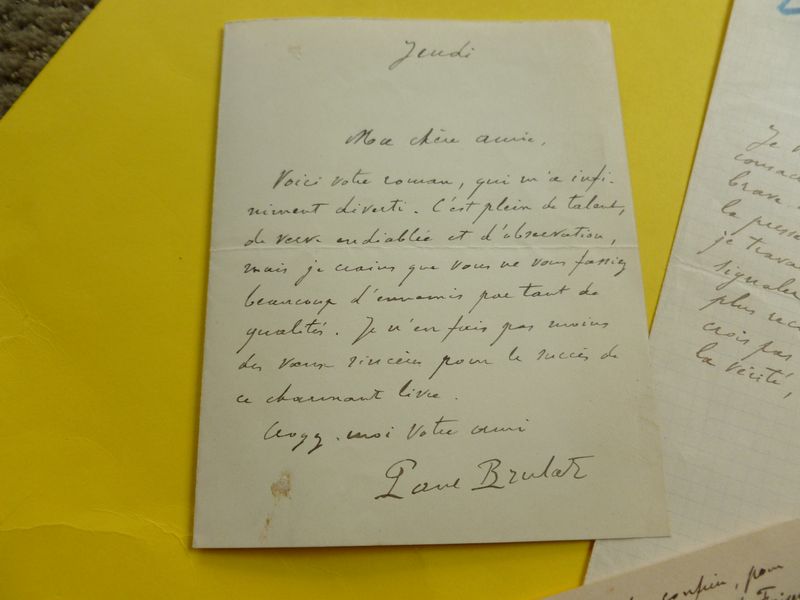 Jeudi
Ma chère amie,
Voici votre roman, qui m'a infi-
niment diverti. C'est plein de talent,
de verve endiablée et d'observation,
mais je crains que vous ne vous fassiez
beaucoup d'ennemis par tant de
qualités. Je n'en fais pas moins
des vœux sincères pour le succès de
ce charmant livre.
Croyez-moi votre ami
Paul Brulat
Je
brave
la presse
je trava
signaler
plus
crois pas
la vérité,
pour